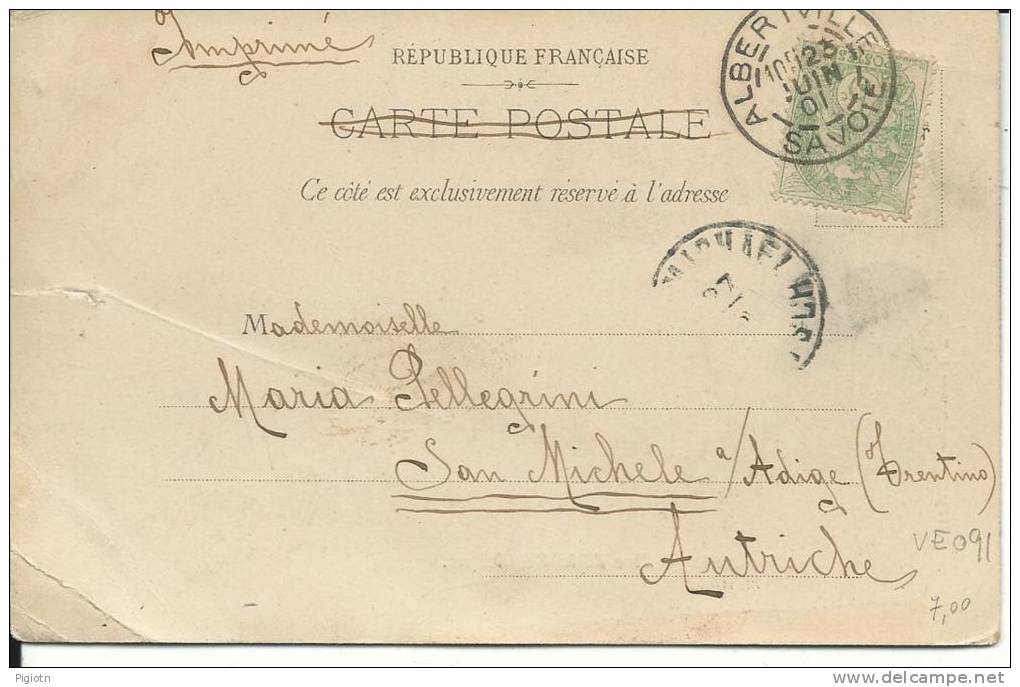 Imprimé
RÉPUBLIQUE FRANÇAISE
CARTE POSTALE
Ce côté est exclusivement réservé à l'adresse
ALBERTVILLE
23
JUIN
01
SAVOIE
Mademoiselle
Maria Pellegrini
San Michele a/Adige (Trentino)
Autriche
VE091
7,00
Pigiotn
www.delcampe.net